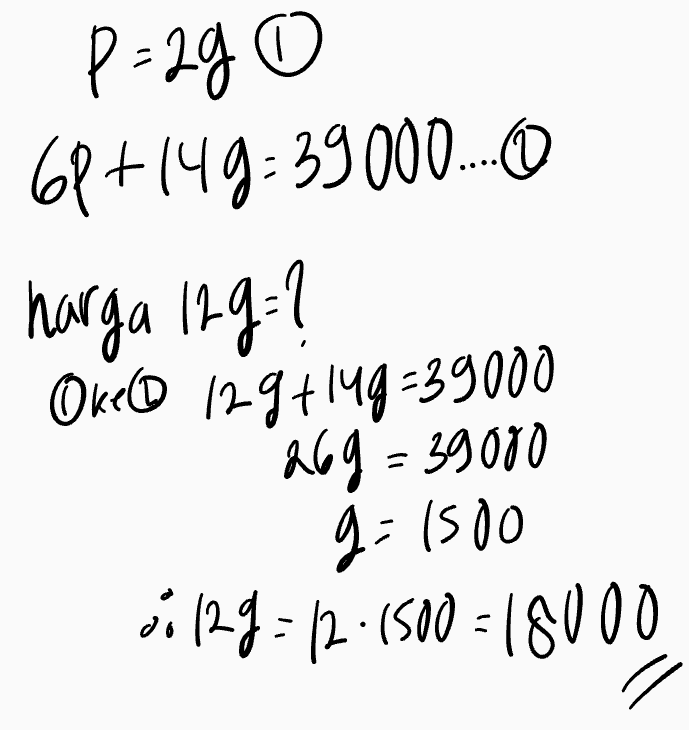 p = 2g ①
6p + 14g = 39000....②
harga 12g = ?
① ke ② 12g + 14g = 39000
26g = 39000
g = 1500
∴ 12g = 12 · 1500 = 18000